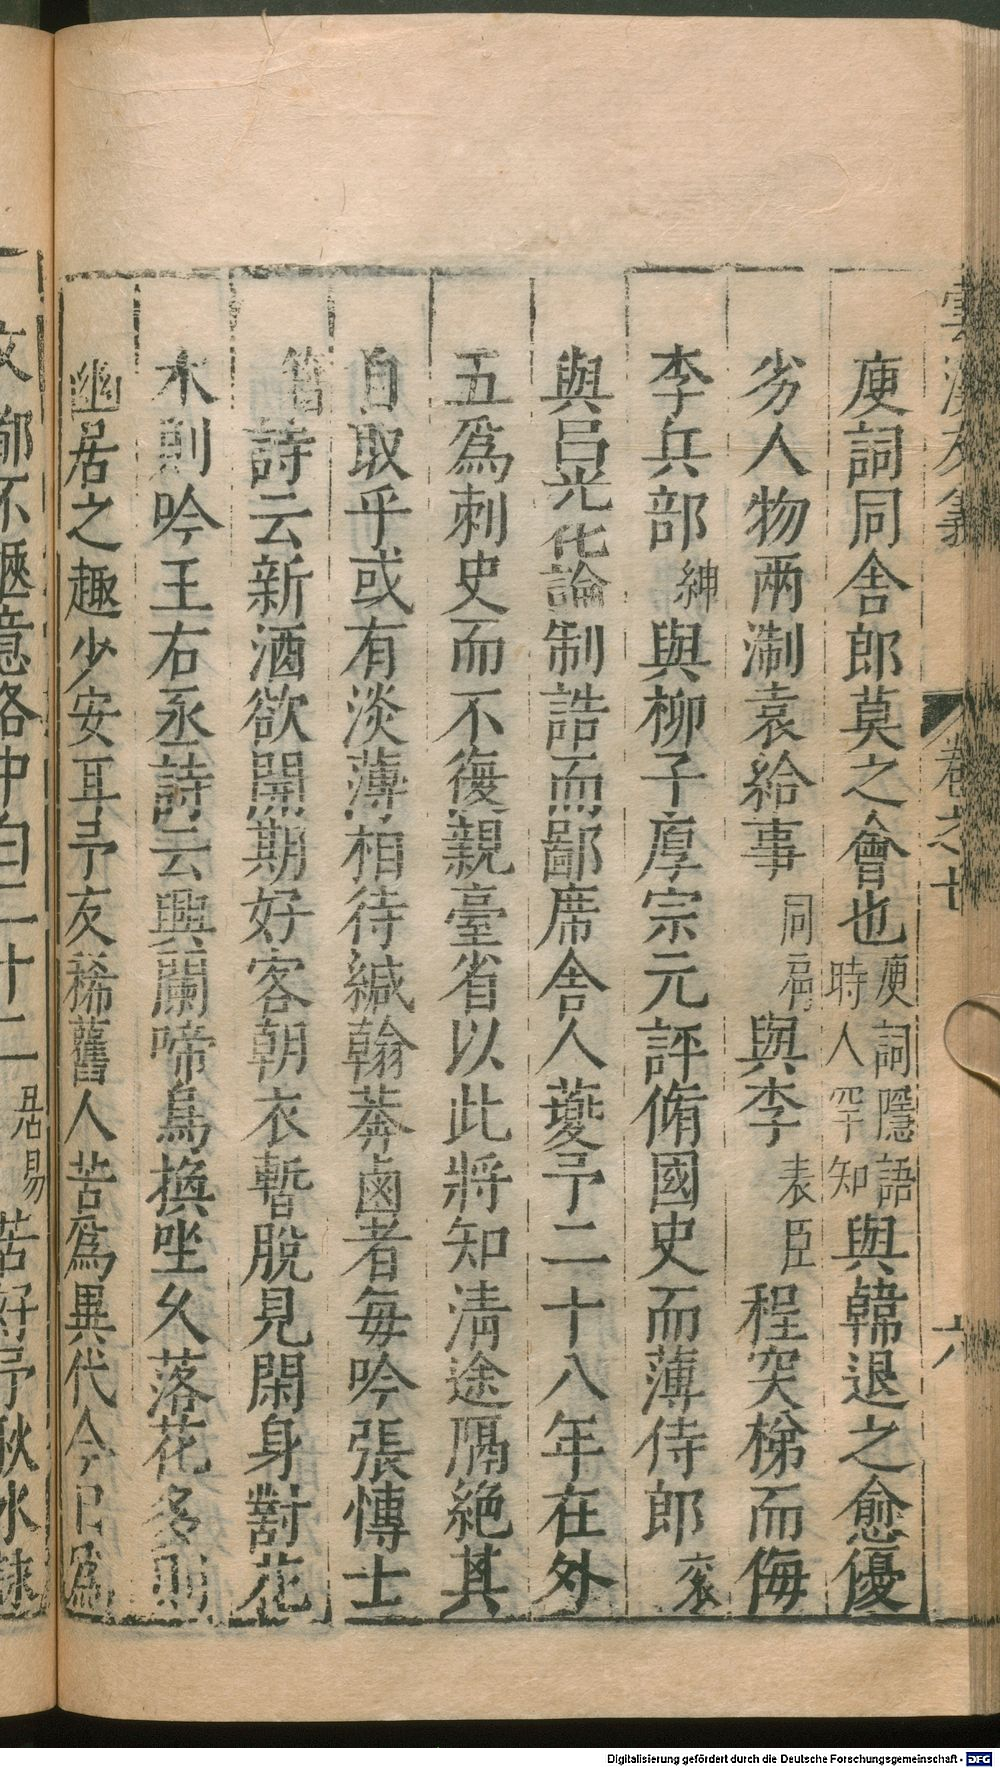 雲溪友議 卷之七 六
庾詞同舍郎莫之會也庾詞隱語時人罕知與韓退之愈優
劣人物兩漸袁給事同禼與李表臣程突梯而侮
李兵部紳與柳子厚宗元評脩國史而薄侍郎衮
與呂光化論制誥而鄙席舍人夔予二十八年在外
五爲刺史而不復親臺省以此將知淸途隔絶其
自取乎或有淡薄相待緘翰莽鹵者每吟張愽士
籍詩云新酒欲開期好客朝衣暫脫見閑身對花
木則吟王右丞詩云興闌啼鳥換坐久落花多則
幽居之趣少安耳予友稀舊人苦爲異代今已爲
文鄭不愜意洛中白二十二居易苦好予秋水詠
Digitalisierung gefördert durch die Deutsche Forschungsgemeinschaft - DFG